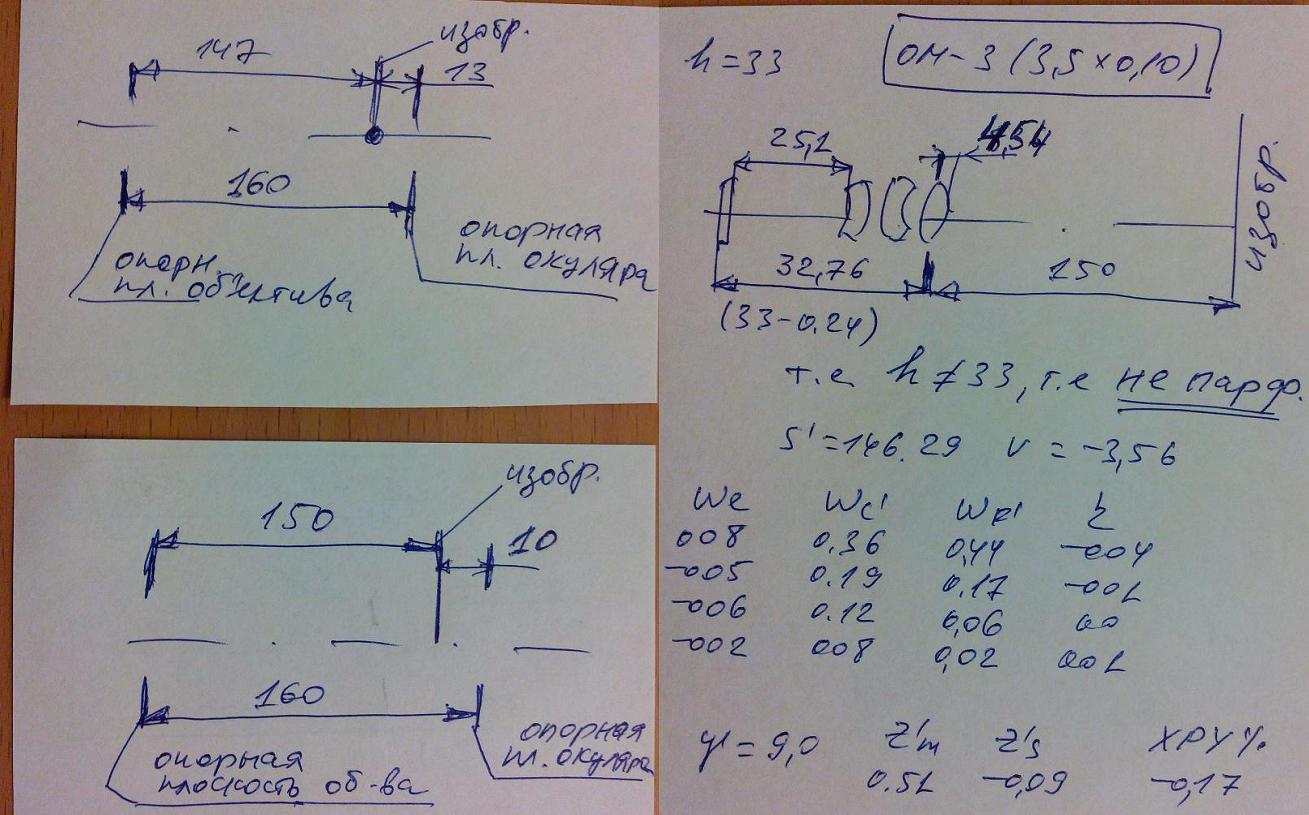 147
изобр.
13
160
опорн.
пл. об'ектива
опорная
пл. окуляра
150
изобр.
10
160
опорная
плоскость об-ва
опорная
пл. окуляра
h=33
ОМ-3 (3,5×0,10)
25,1
изобр.
32,76
150
(33-0.24)
т.е h≠33, т.е не парф.
S'=146.29 V = -3,56
We Wc' WF' η
008 0.36 0,44 -004
-005 0.19 0.17 -001
-006 0.12 0,06 00
-002 008 0,02 001
y' = 9,0 Z'm Z's ХРУ%
0.51 -0,09 -0,17